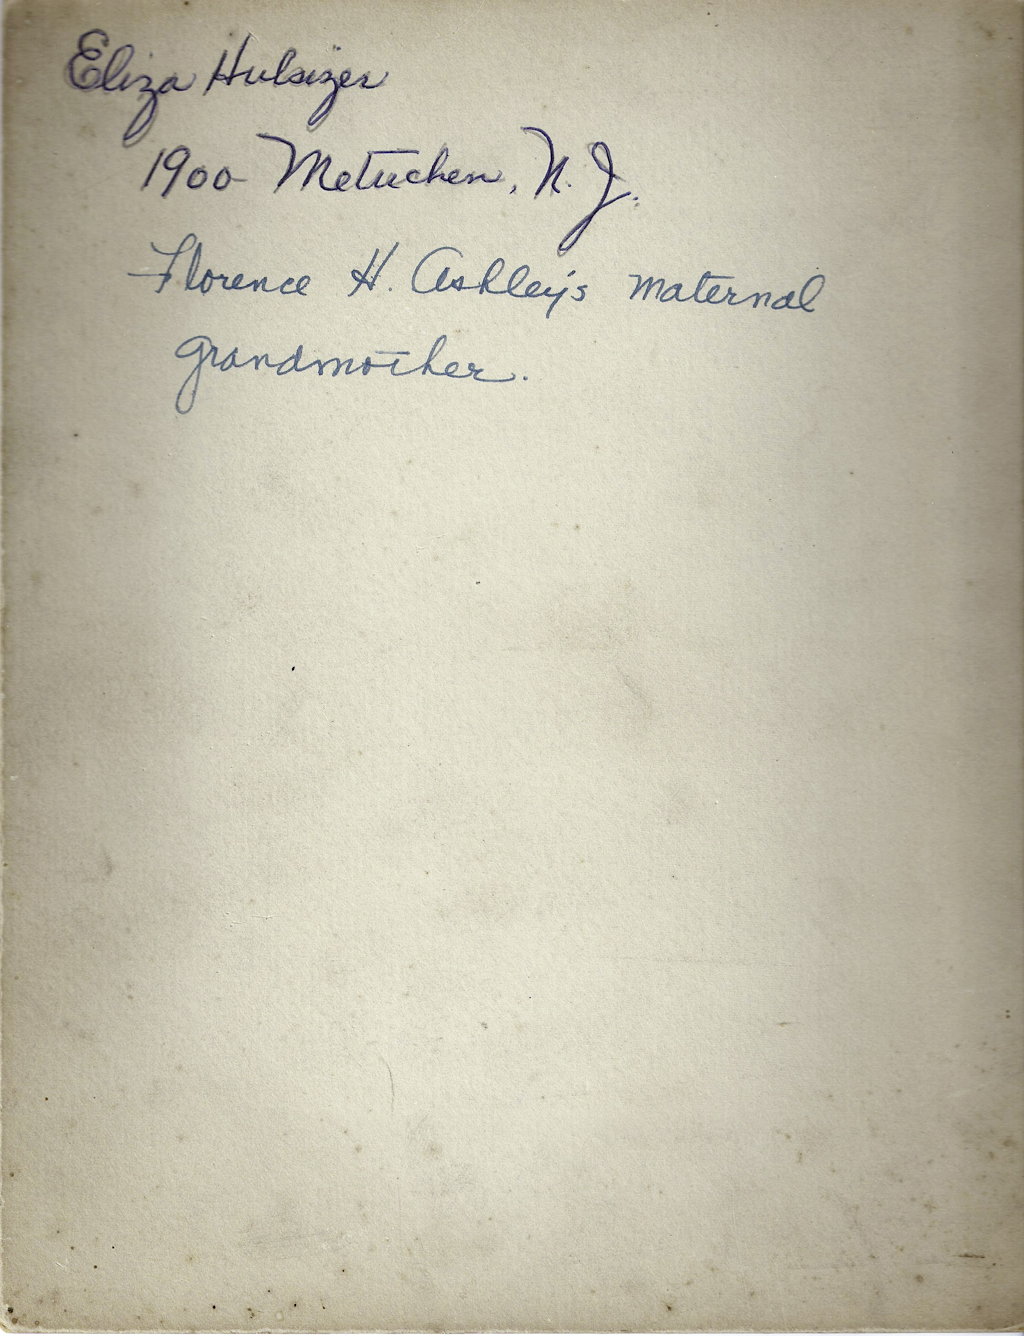 Eliza Hulsizer
1900 - Metuchen, N.J.
Florence H. Ashley's maternal
grandmother.